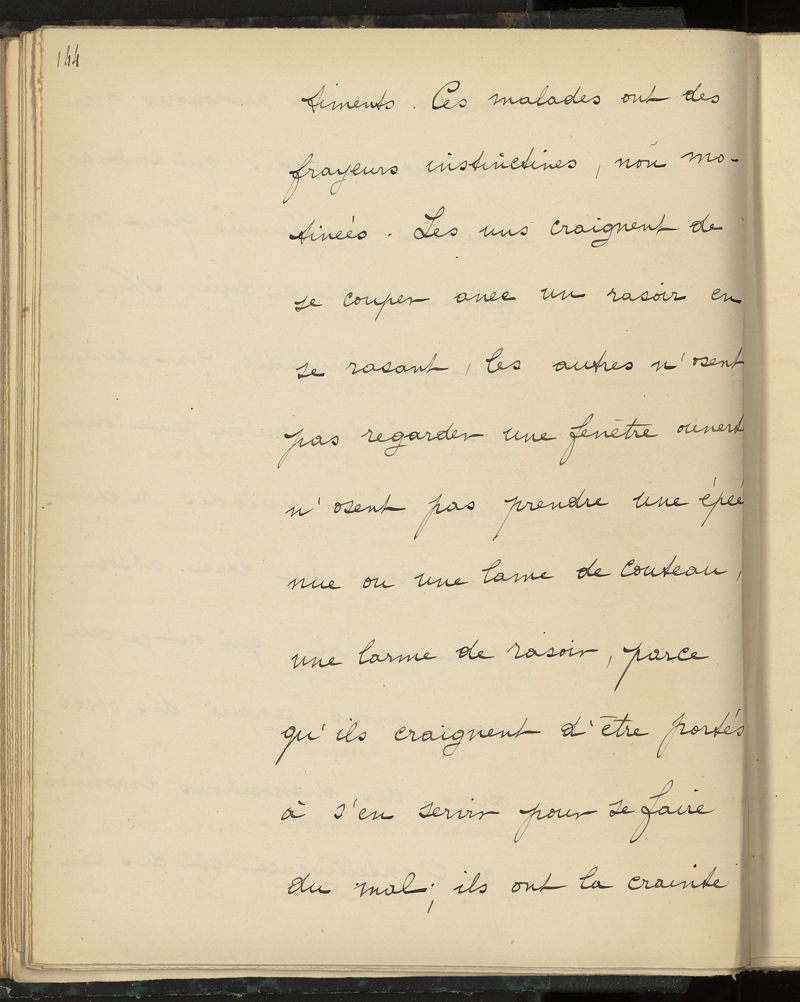 144
timents. Ces malades ont des
frayeurs instinctives, non mo-
tivées. Les uns craignent de
se couper avec un rasoir en
se rasant, les autres n'osent
pas regarder une fenêtre ouvert
n'osent pas prendre une épée
nue ou une lame de couteau,
une larme de rasoir, parce
qu'ils craignent d'être portés
à s'en servir pour se faire
du mal; ils ont la crainte